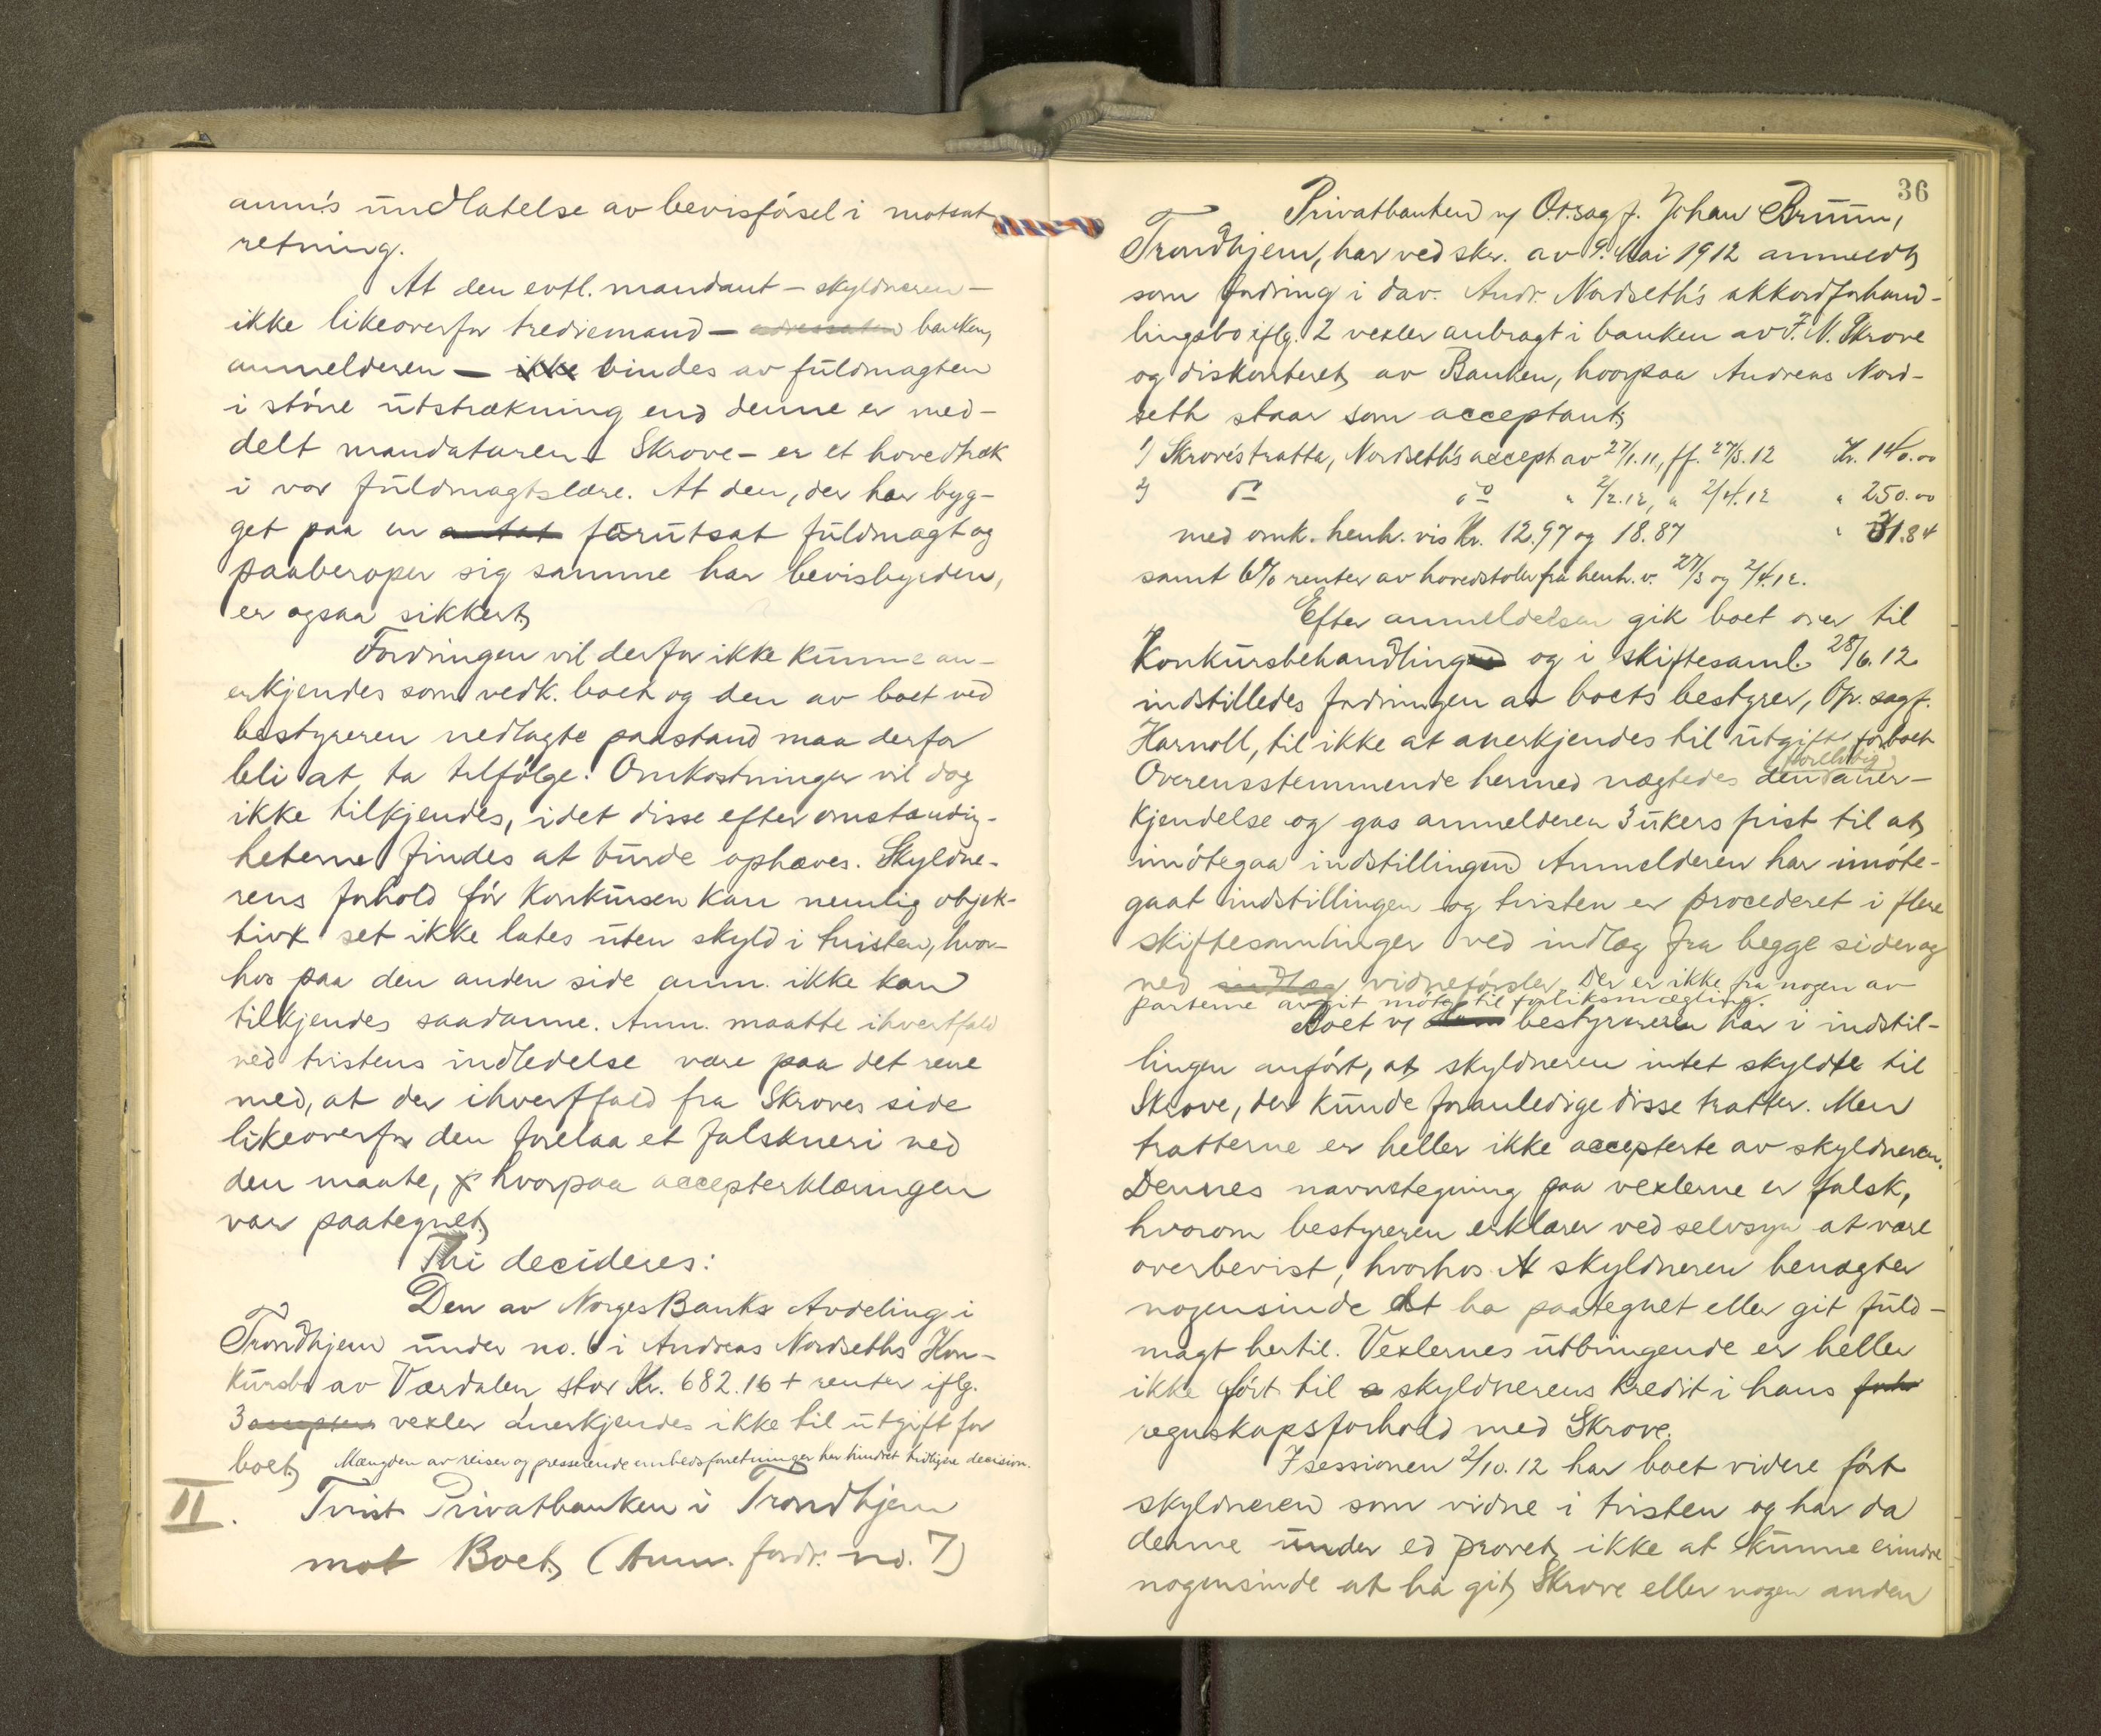 anm's undlatelse av bevisførsel i motsat
retning.
At den evtl. mandant - skyldneren -
ikke likeoverfor trediemand - adressaten banken,
anmelderen - ikke bindes av fuldmagten
i større utstrækning end denne er med-
delt mandataren - Skrove - er et hovedtræk
i vor fuldmagtslære. At den, der har byg-
get paa en antat forutsat fuldmagt og
paaberoper sig samme har bevisbyrden,
er ogsaa sikkert.
Fordringen vil derfor ikke kunne an-
erkjendes som vedk. boet og den av boet ved
bestyreren nedlagte paastand maa derfor
bli at ta tilfølge. Omkostninger vil dog
ikke tilkjendes, idet disse efter omstændig-
heterne findes at burde ophæves. Skyldne-
rens forhold før konkursen kan nemlig objek-
tivt set ikke lates uten skyld i tvisten, hvor-
hos paa den anden side anm. ikke kan
tilkjendes saadanne. Anm. maatte ihvertfald
ved tvistens indledelse være paa det rene
med, at der ihvertfald fra Skroves side
likeoverfor den forelaa et falskneri ved
den maate, hvorpaa accepterklæringen
var paategnet.
Thi decideres:
Den av Norges Banks Avdeling i
Trondhjem under no. 6 i Andreas Nordseths Kon-
kursbo av Værdalen stor Kr. 682.16 + renter iflg.
3 accepter vexler anerkjendes ikke til utgift for
boet. Mængden av reiser og presserende embedsforretninger har hindret tidligere decision.
II. Tvist Privatbanken i Trondhjem
mot Boet, (Anm. fordr. no. 7)
36
Privatbanken v/ O.r.sagf. Johan Bruun,
Trondhjem, har ved skr. av 9. Mai 1912 anmeldt
som fordring i dav. Andr. Nordseth's akkordforhand-
lingsbo iflg. 2 vexler anbragt i banken av F. N. Skrove
og diskonteret av Banken, hvorpaa Andreas Nord-
seth staar som acceptant,
1) Skrove's tratta, Nordseth's accept av 27/1.11, ff. 27/3.12 Kr. 140.00
2) do do " 2/2.12, " 2/4.12 " 250.00
med omk. henh. vis Kr. 12.97 og 18.87 " 31.84
samt 6% renter av hovedstolen fra henh. v. 27/3 og 2/4.12.
Efter anmeldelsen gik boet over til
Konkursbehandling og i skiftesaml. 28/6.12
indstilledes fordringen av boets bestyrer, Op. sagf.
Harnoll, til ikke at anerkjendes til utgift for boet
Overensstemmende hermed nægtedes den foreløbig aner-
kjendelse og gas anmelderen 3 ukers frist til at
imøtegaa indstillingen. Anmelderen har imøte-
gaat indstillingen og tvisten er procederet i flere
skiftesamlinger ved indlæg fra begge sider og
ved indlæg vidneførsler. Der er ikke fra nogen av
parterne avgit møte til forliksmægling.
Boet v/ bestyreren har i indstil-
lingen anført, at skyldneren intet skyldte til
Skrove, der kunde foranledige disse tratter. Men
tratterne er heller ikke accepterte av skyldneren.
Dennes navnetegning paa vexlerne er falsk,
hvorom bestyreren erklærer ved selvsyn at være
overbevist, hvorhos skyldneren benægter
nogensinde at ha paategnet eller git fuld-
magt hertil. Vexlernes utbringende er heller
ikke ført til skyldnerens kredit i hans
regnskapsforhold med Skrove.
I sessionen 2/10.12 har boet videre ført
skyldneren som vidne i tvisten og har da
denne under ed prøvet ikke at kunne erindre
nogensinde at ha git Skrove eller nogen anden